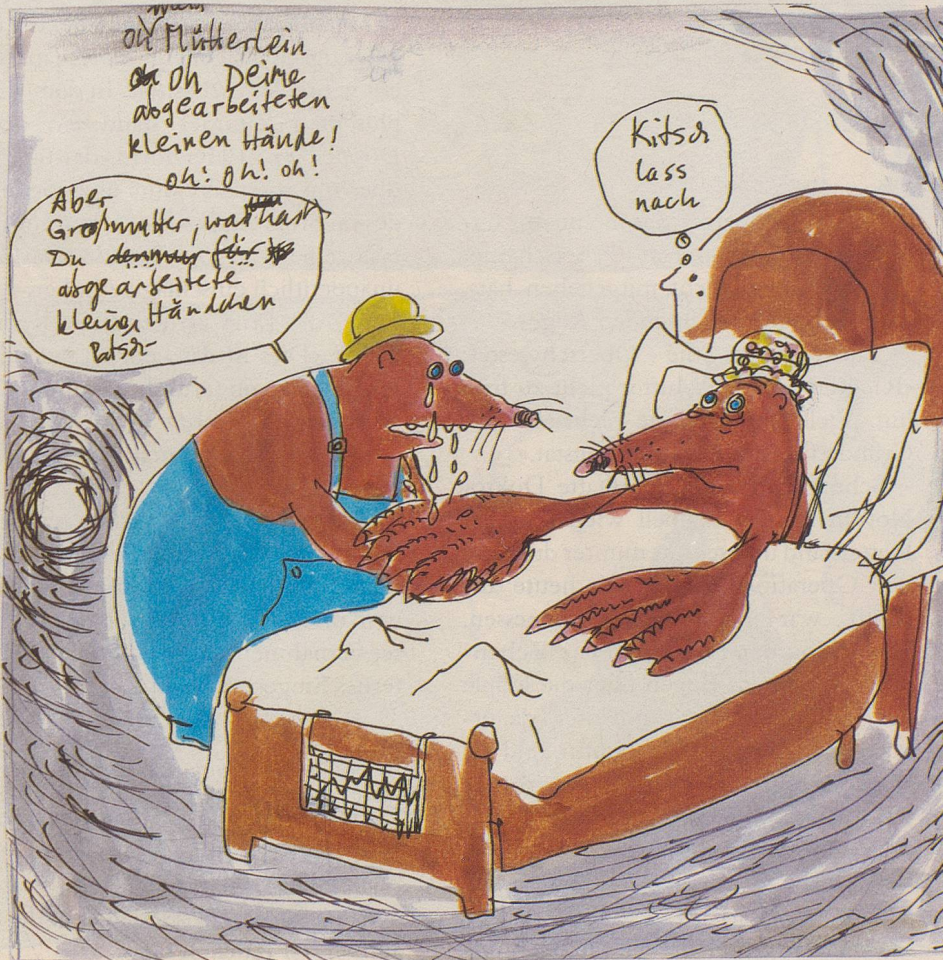 mein
oh Mütterlein
oh Deine
abgearbeiteten
kleinen Hände!
oh! oh! oh!
Aber
Großmutter, was hast
Du denn nur für
abgearbeitete
kleine Händchen
Patsch-
Kitsch
lass
nach